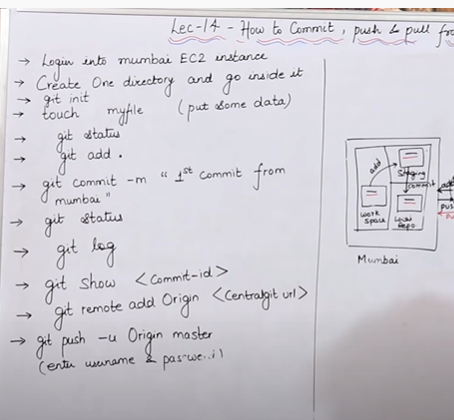 Lec-14 - How to Commit, push & pull
→ Login into mumbai EC2 instance
→ Create One directory and go inside it
→ git init
→ touch myfile (put some data)
→ git status
→ git add .
→ git commit -m " 1st Commit from
mumbai"
→ git status
→ git log
→ git show <Commit-id>
→ git remote add Origin <Centralgit url>
→ git push -u Origin master
(enter username &
add
Staging
commit
Work
Space
Local
Repo
Mumbai